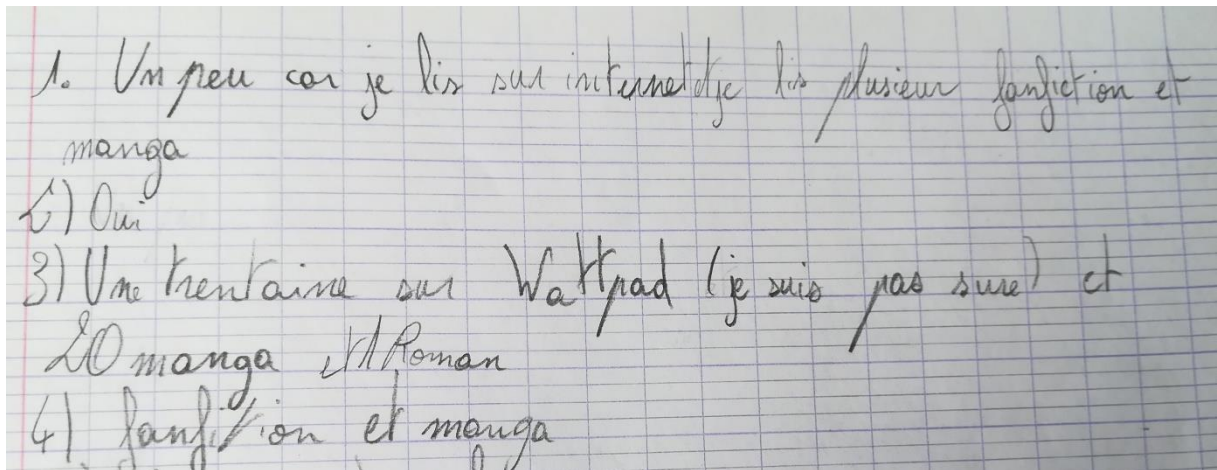 1. Un peu car je lis sur internet et je lis plusieur fanfiction et
manga
2) Oui
3) Une trentaine sur Wattpad (je suis pas sure) et
20 manga et 1 Roman
4) fanfition et manga